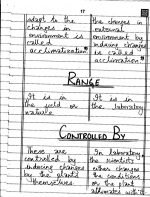 17
adapt to the
changes in
environment is
called
acclimatization"
the changes in
external
environment by
inducing changes
is called
acclimation"
RANGE
It is in
the wild or
nature.
It is in
the laboratory
CONTROLLED BY
These are
controlled by
inducing changes
by the plants
themselves.
In laboratory,
the scientists
either changes
the conditions
or the plant